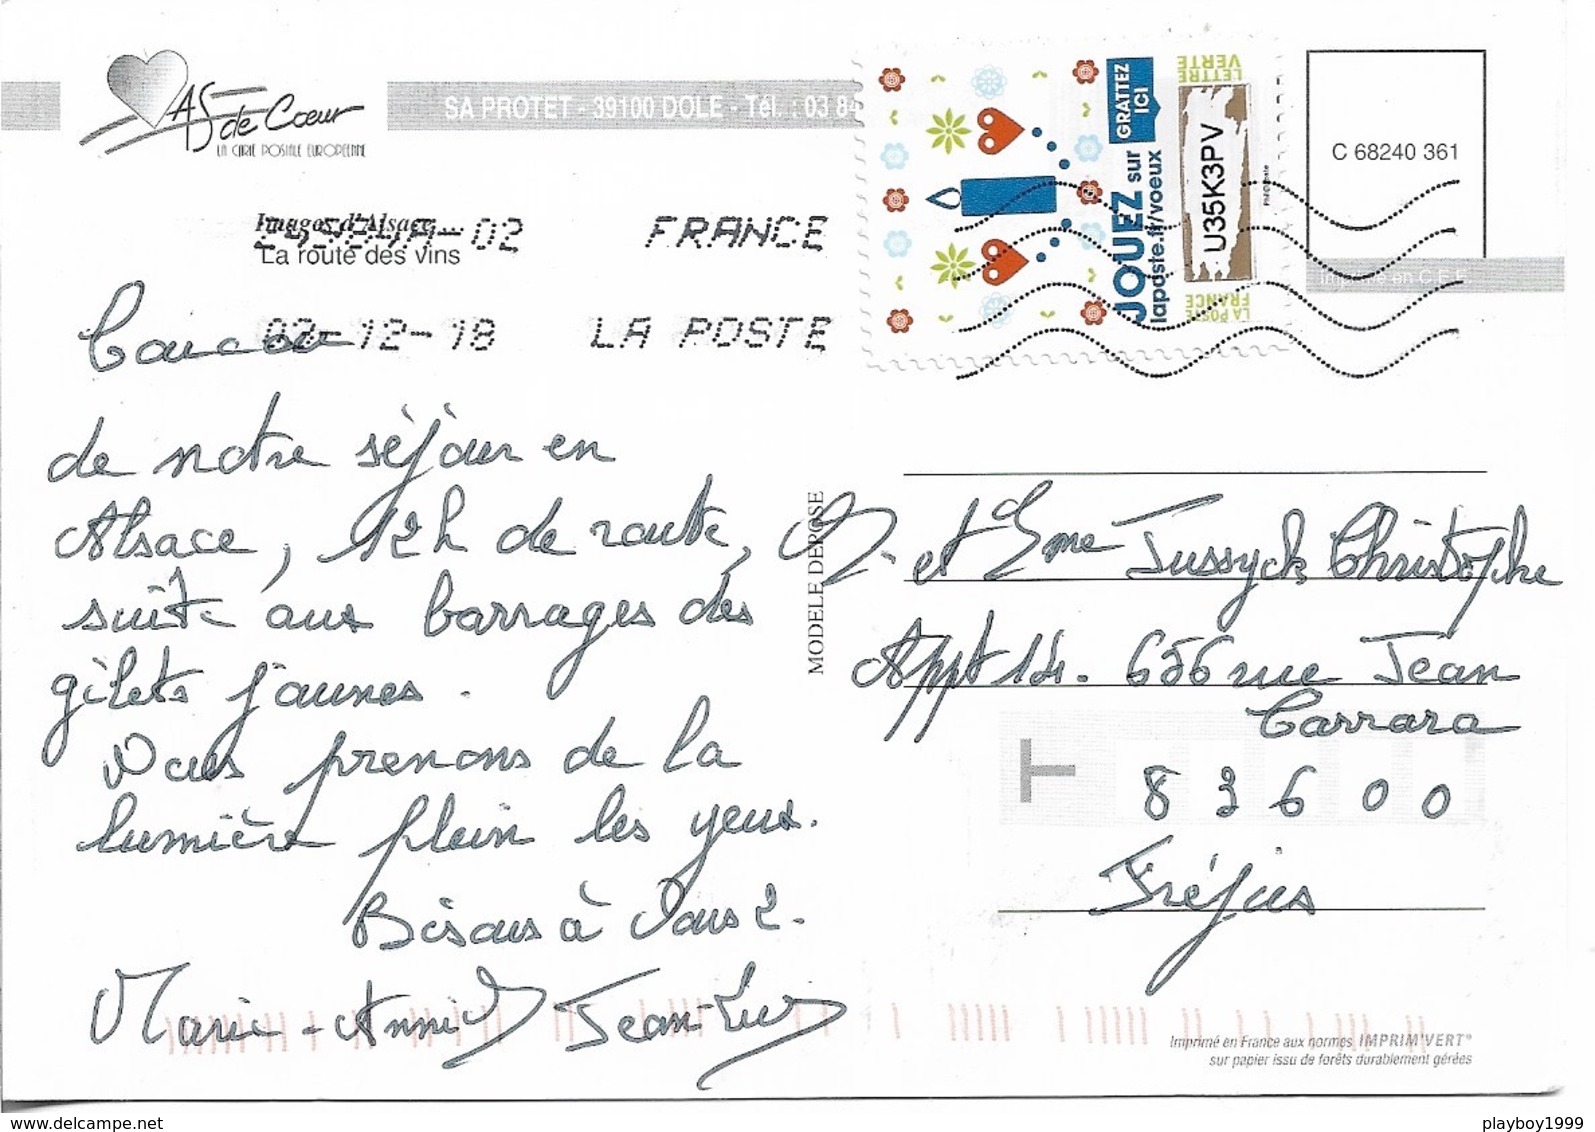 AS de Cœur
LA CARTE POSTALE EUROPEENNE
SA PROTET - 39100 DOLE - Tél. : 03 84
Images d'Alsace
La route des vins
02
FRANCE
02-12-18
LA POSTE
LETTRE VERTE
GRATTEZ ICI
JOUEZ sur
laposte.fr/voeux
U35K3PV
Phil@poste
LA POSTE
FRANCE
C 68240 361
Imprimé en C.E.E.
Coucou
de notre séjour en
Alsace, 12h de route,
suite aux barrages des
gilets jaunes.
Vous prenons de la
lumière plein les yeux.
Bisous à Vous 2.
Marie-Annick Jean-Luc
MODELE DEPOSE
M. et Mme Jussyck Christophe
Appt 14. 656 rue Jean
Carrara
T
8 3 6 0 0
Fréjus
Imprimé en France aux normes IMPRIM'VERT®
sur papier issu de forêts durablement gérées
playboy1999